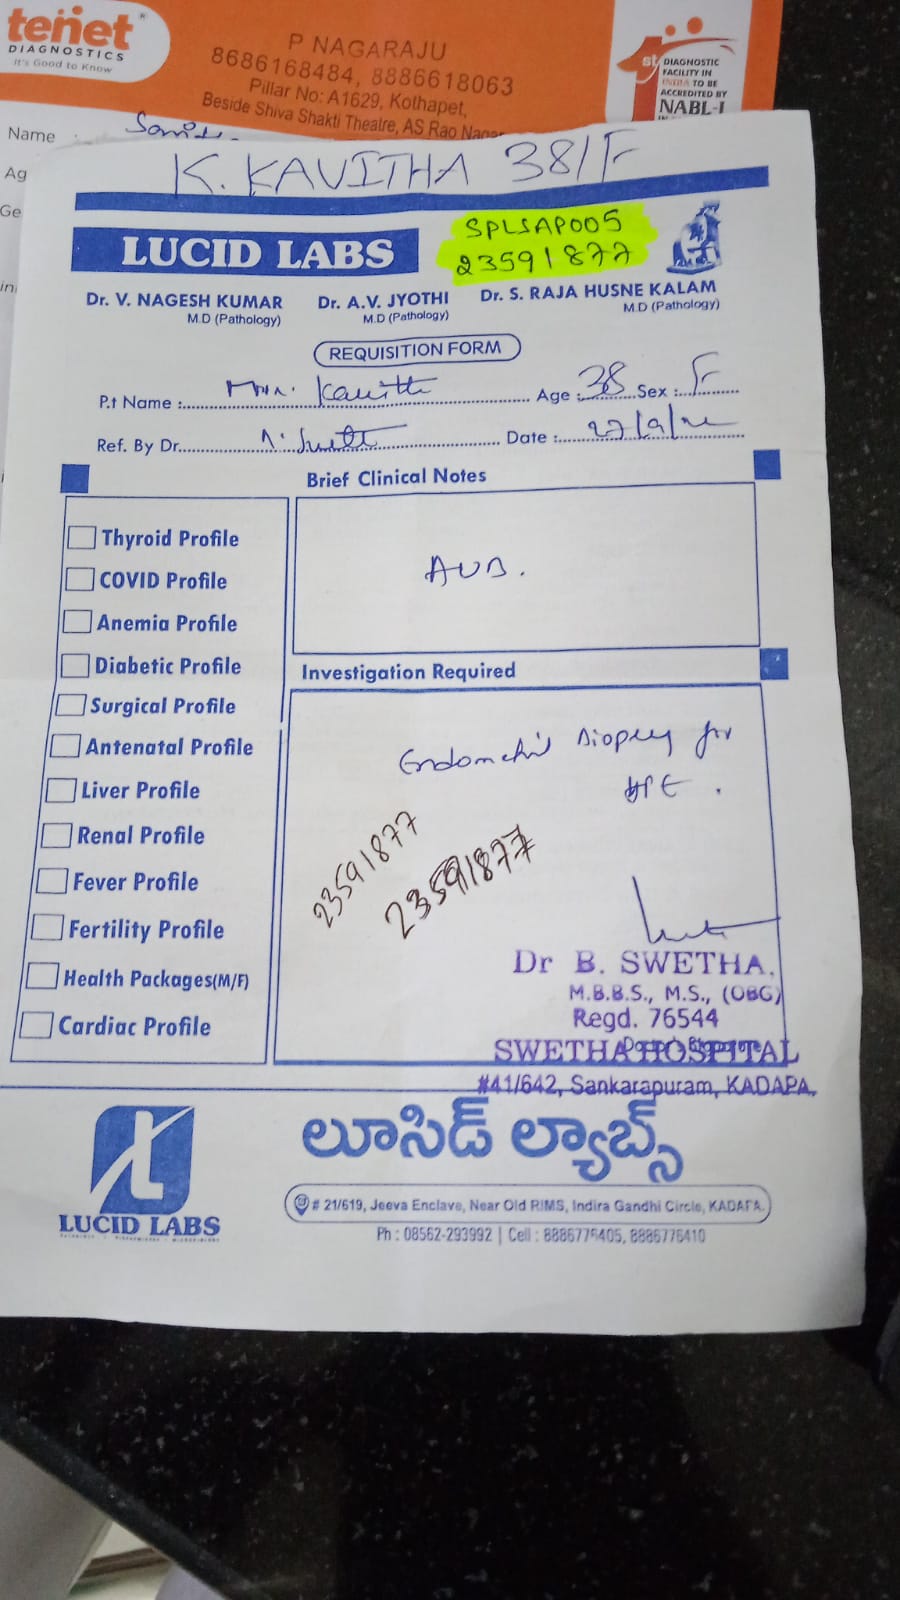 tenet
DIAGNOSTICS
It's Good to Know
P NAGARAJU
8686168484, 8886618063
Pillar No: A1629, Kothapet,
Beside Shiva Shakti Theatre, AS Rao Nagar
1st DIAGNOSTIC
FACILITY IN
INDIA TO BE
ACCREDITED BY
NABL-I
Name :
Ag
Ge
K. KAVITHA 38/F
LUCID LABS
SPLSAP005
23591877
Dr. V. NAGESH KUMAR
M.D (Pathology)
Dr. A.V. JYOTHI
M.D (Pathology)
Dr. S. RAJA HUSNE KALAM
M.D (Pathology)
REQUISITION FORM
P.t Name : Mrs. Kavitha Age : 38 Sex : F
Ref. By Dr. Date : 27/9/
Brief Clinical Notes
AUB.
Thyroid Profile
COVID Profile
Anemia Profile
Diabetic Profile
Surgical Profile
Antenatal Profile
Liver Profile
Renal Profile
Fever Profile
Fertility Profile
Health Packages(M/F)
Cardiac Profile
Investigation Required
Endometrial Biopsy for
HPE.
23591877
23591877
Dr B. SWETHA,
M.B.B.S., M.S., (OBG)
Regd. 76544
SWETHA HOSPITAL
#41/642, Sankarapuram, KADAPA.
లూసిడ్ ల్యాబ్స్
LUCID LABS
# 21/619, Jeeva Enclave, Near Old RIMS, Indira Gandhi Circle, KADAPA.
Ph : 08562-293992 | Cell : 8886775405, 8886776410